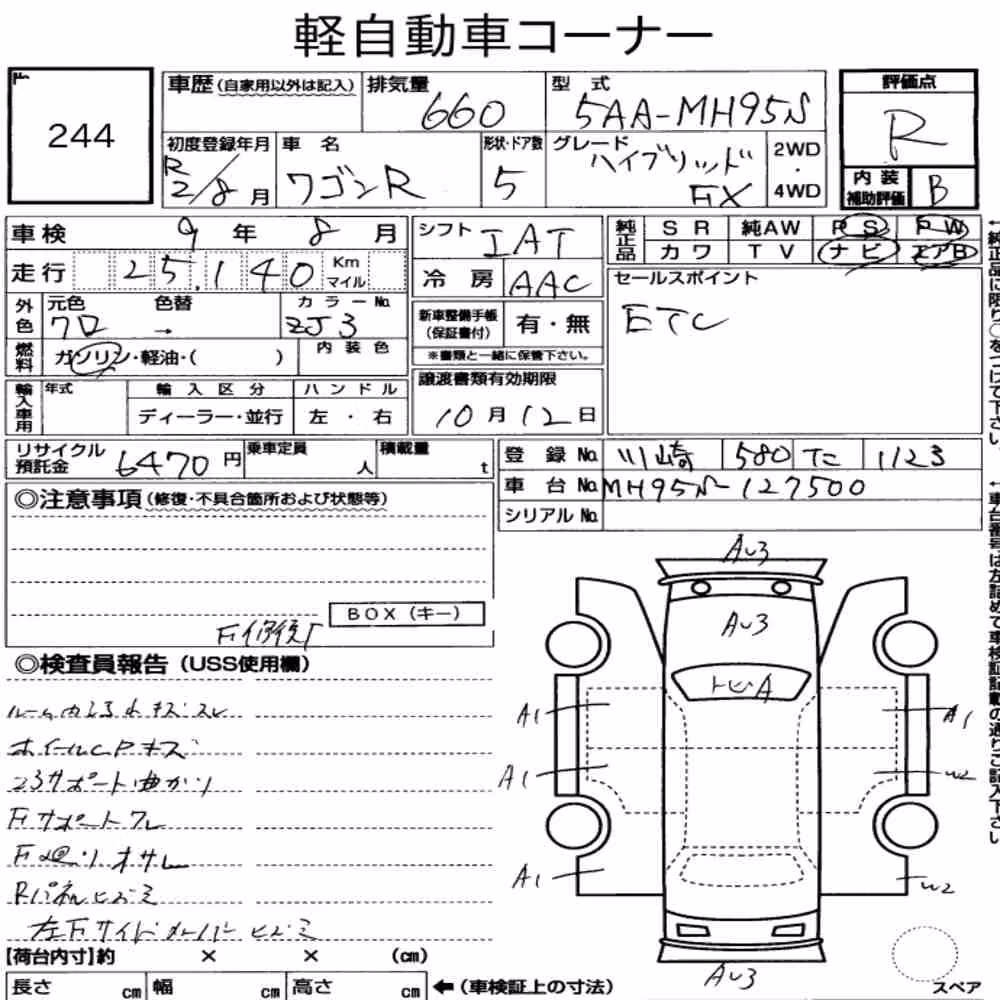 軽自動車コーナー
№
244
車歴(自家用以外は記入)
排気量
660
型式
5AA-MH95S
評価点
R
初度登録年月
R
2/8月
車名
ワゴンR
形状・ドア数
5
グレード
ハイブリッド
FX
2WD
・
4WD
内装
補助評価
B
車検 9年 8月
シフト IAT
純正品
SR 純AW PS PW
カワ TV ナビ エアB
走行 25,140 Km
マイル
冷房 AAC
セールスポイント
ETC
外色
元色 色替 カラーNo.
クロ → ZJ3
新車整備手帳
(保証書付)
有・無
※書類と一緒に保管下さい。
燃料
ガソリン・軽油・( )
内装色
輸入車用
年式 輸入区分 ハンドル
ディーラー・並行 左・右
譲渡書類有効期限
10月12日
リサイクル
預託金
6470円
乗車定員
人
積載量
t
登録No. 川崎 580 1123
車台No. MH95S-127500
シリアルNo.
◎注意事項(修復・不具合箇所および状態等)
BOX(キー)
F修復
◎検査員報告(USS使用欄)
ホイールCPキズ
23サポート曲がり
Fサポートワレ
Rパネルヒズミ
左Fサイドメンバーヒズミ
AU3
AU3
トビA
A1
A1
A1
A1
W2
W2
AU3
スペア
【荷台内寸】約 × × (cm)
長さ cm 幅 cm 高さ cm
←(車検証上の寸法)
←純正品に限り○をつけて下さい。
←車台番号は左詰めで車検証記載の通りご記入下さい